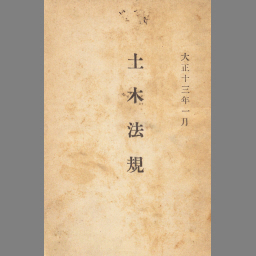 大正十三年一月
土木法規